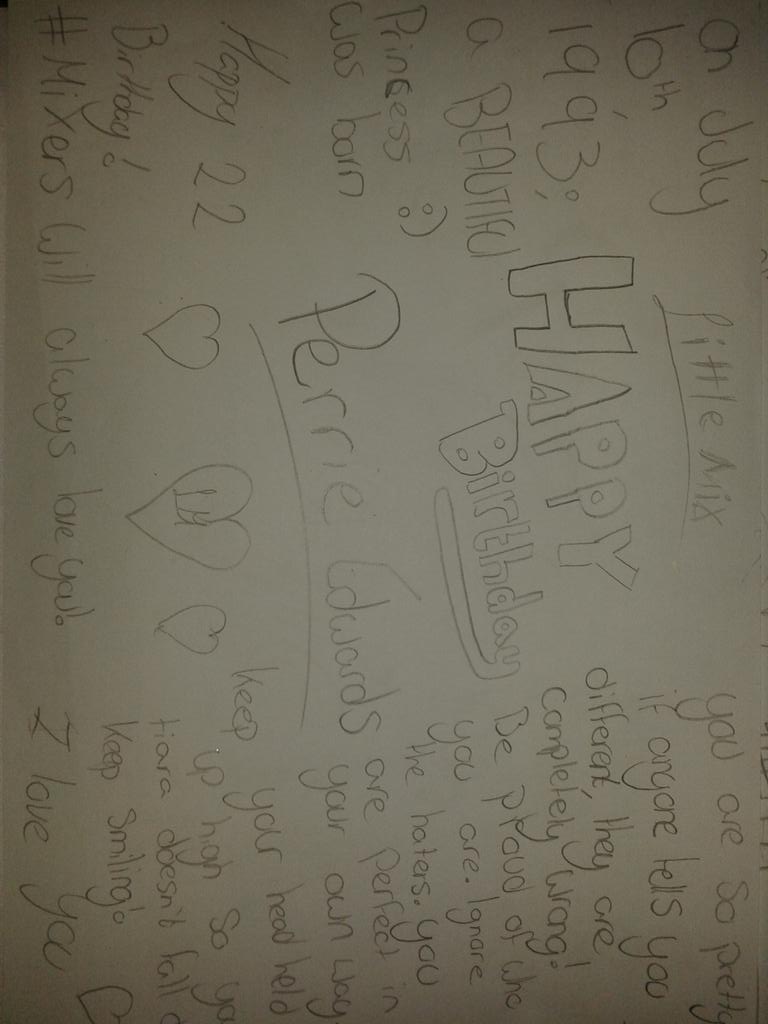 On July
10th,
1993;
a BEAUTIFUL
Princess :)
was born
Happy 22
Birthday!
#Mixers will always love you!
Little Mix
HAPPY
Birthday
Perrie Edwards
LM
you are so pretty
if anyone tells you
different, they are
completely wrong!
Be proud of who
you are. Ignore
the haters. you
are perfect in
your own way
Keep your head held
up high so you
tiara doesn't fall
keep smiling!
I love you